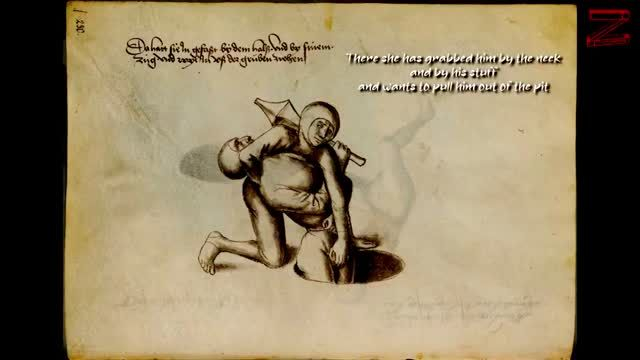 Da hat sie in gefast by dem halß und by sinem
zug und in uß der gruben ziehen
There she has grabbed him by the neck
and by his stuff
and wants to pull him out of the pit